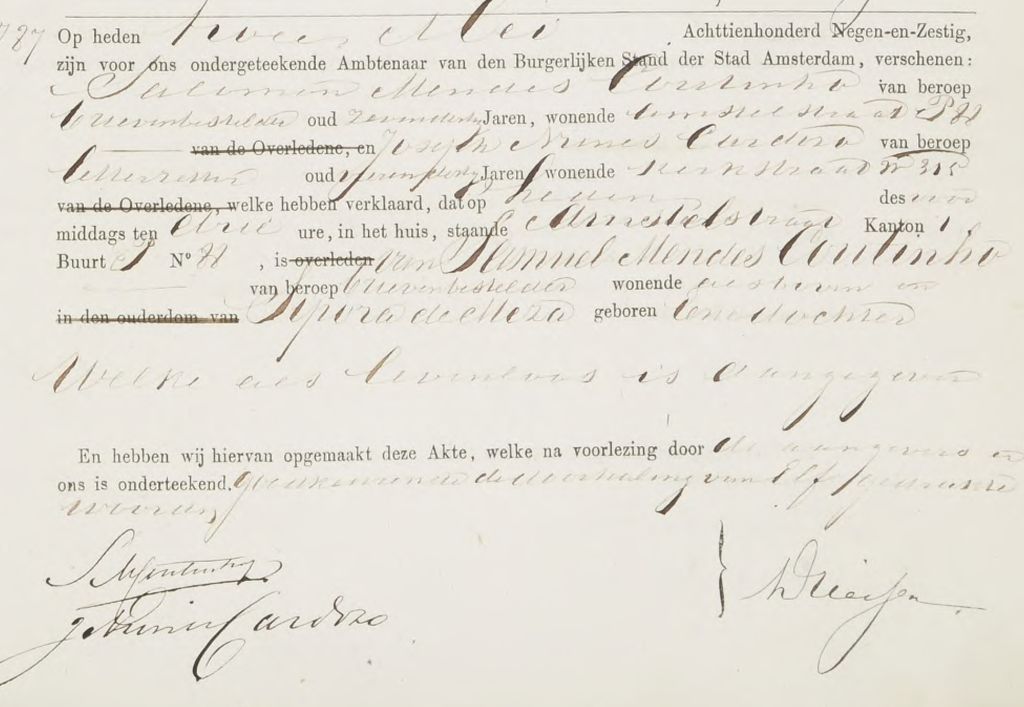 Op heden twee Mei Achttienhonderd Negen-en-Zestig,
zijn voor ons ondergeteekende Ambtenaar van den Burgerlijken Stand der Stad Amsterdam, verschenen:
Salomon Mendes Coutinho van beroep
brievenbesteller oud Jaren, wonende Amstelstraat P 88
van de Overledene, en Joseph Nunes Cardozo van beroep
letterzetter oud Jaren, wonende Kerkstraat N 315
van de Overledene, welke hebben verklaard, dat op heden des voor
middags ten drie ure, in het huis, staande Amstelstraat Kanton 1
Buurt P N° 88, is overleden van Samuel Mendes Coutinho
van beroep brievenbesteller wonende alsboven en
in den ouderdom van Sipora de Meza geboren Eene dochter
Welke als levenloos is aangegeven
En hebben wij hiervan opgemaakt deze Akte, welke na voorlezing door de aangevers en
ons is onderteekend. Goedkeurende de doorhaling van Elf gedrukte
woorden
SMCoutinho
J Nunes Cardozo